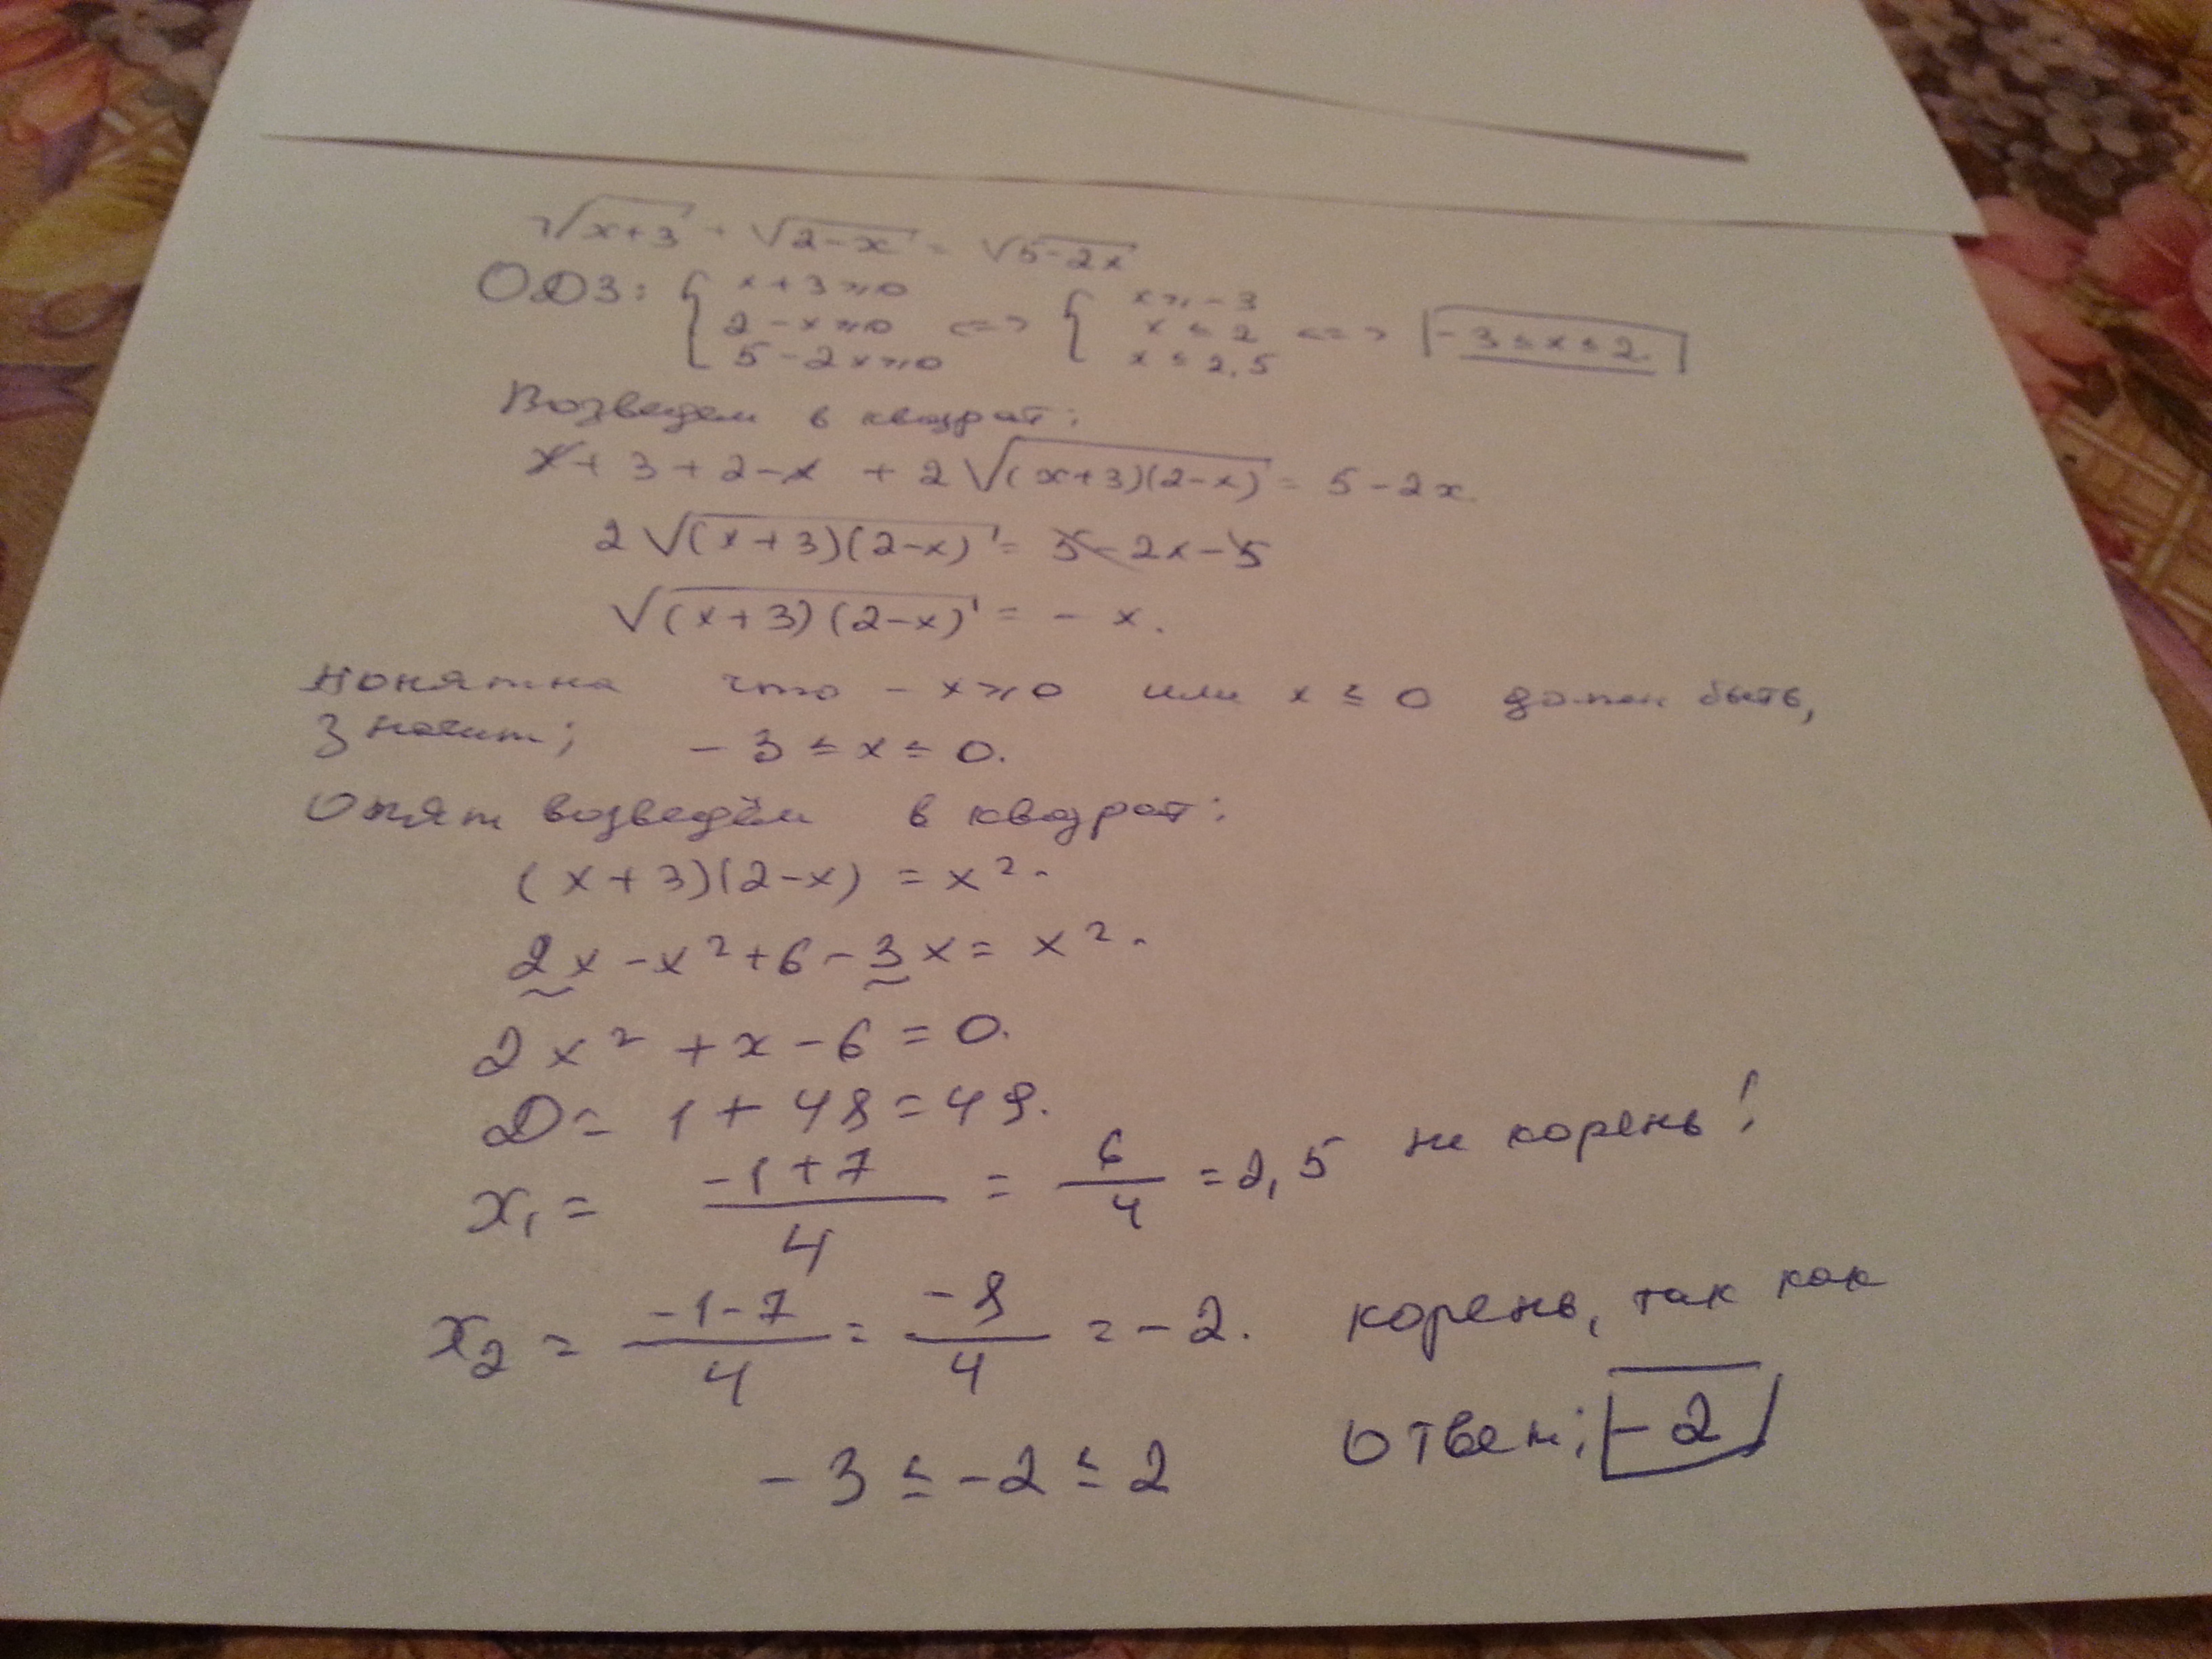 √x+3 + √2-x = √5-2x
ОДЗ: { x+3≥0 2-x≥0 5-2x≥0 <=> { x≥-3 x≤2 x≤2,5 <=> -3≤x≤2
Возведем в квадрат:
x+3+2-x + 2√(x+3)(2-x) = 5-2x
2√(x+3)(2-x) = 5-2x-5
√(x+3)(2-x) = -x.
понятна что -x≥0 или x≤0 должен быть,
Значит; -3≤x≤0.
Опят возведём в квадрат:
(x+3)(2-x) = x².
2x-x²+6-3x = x².
2x²+x-6=0.
D = 1+48=49.
x₁ = -1+7/4 = 6/4 = 2,5 не корень!
x₂ = -1-7/4 = -8/4 = -2. корень, так как
-3≤-2≤2 ответ; -2